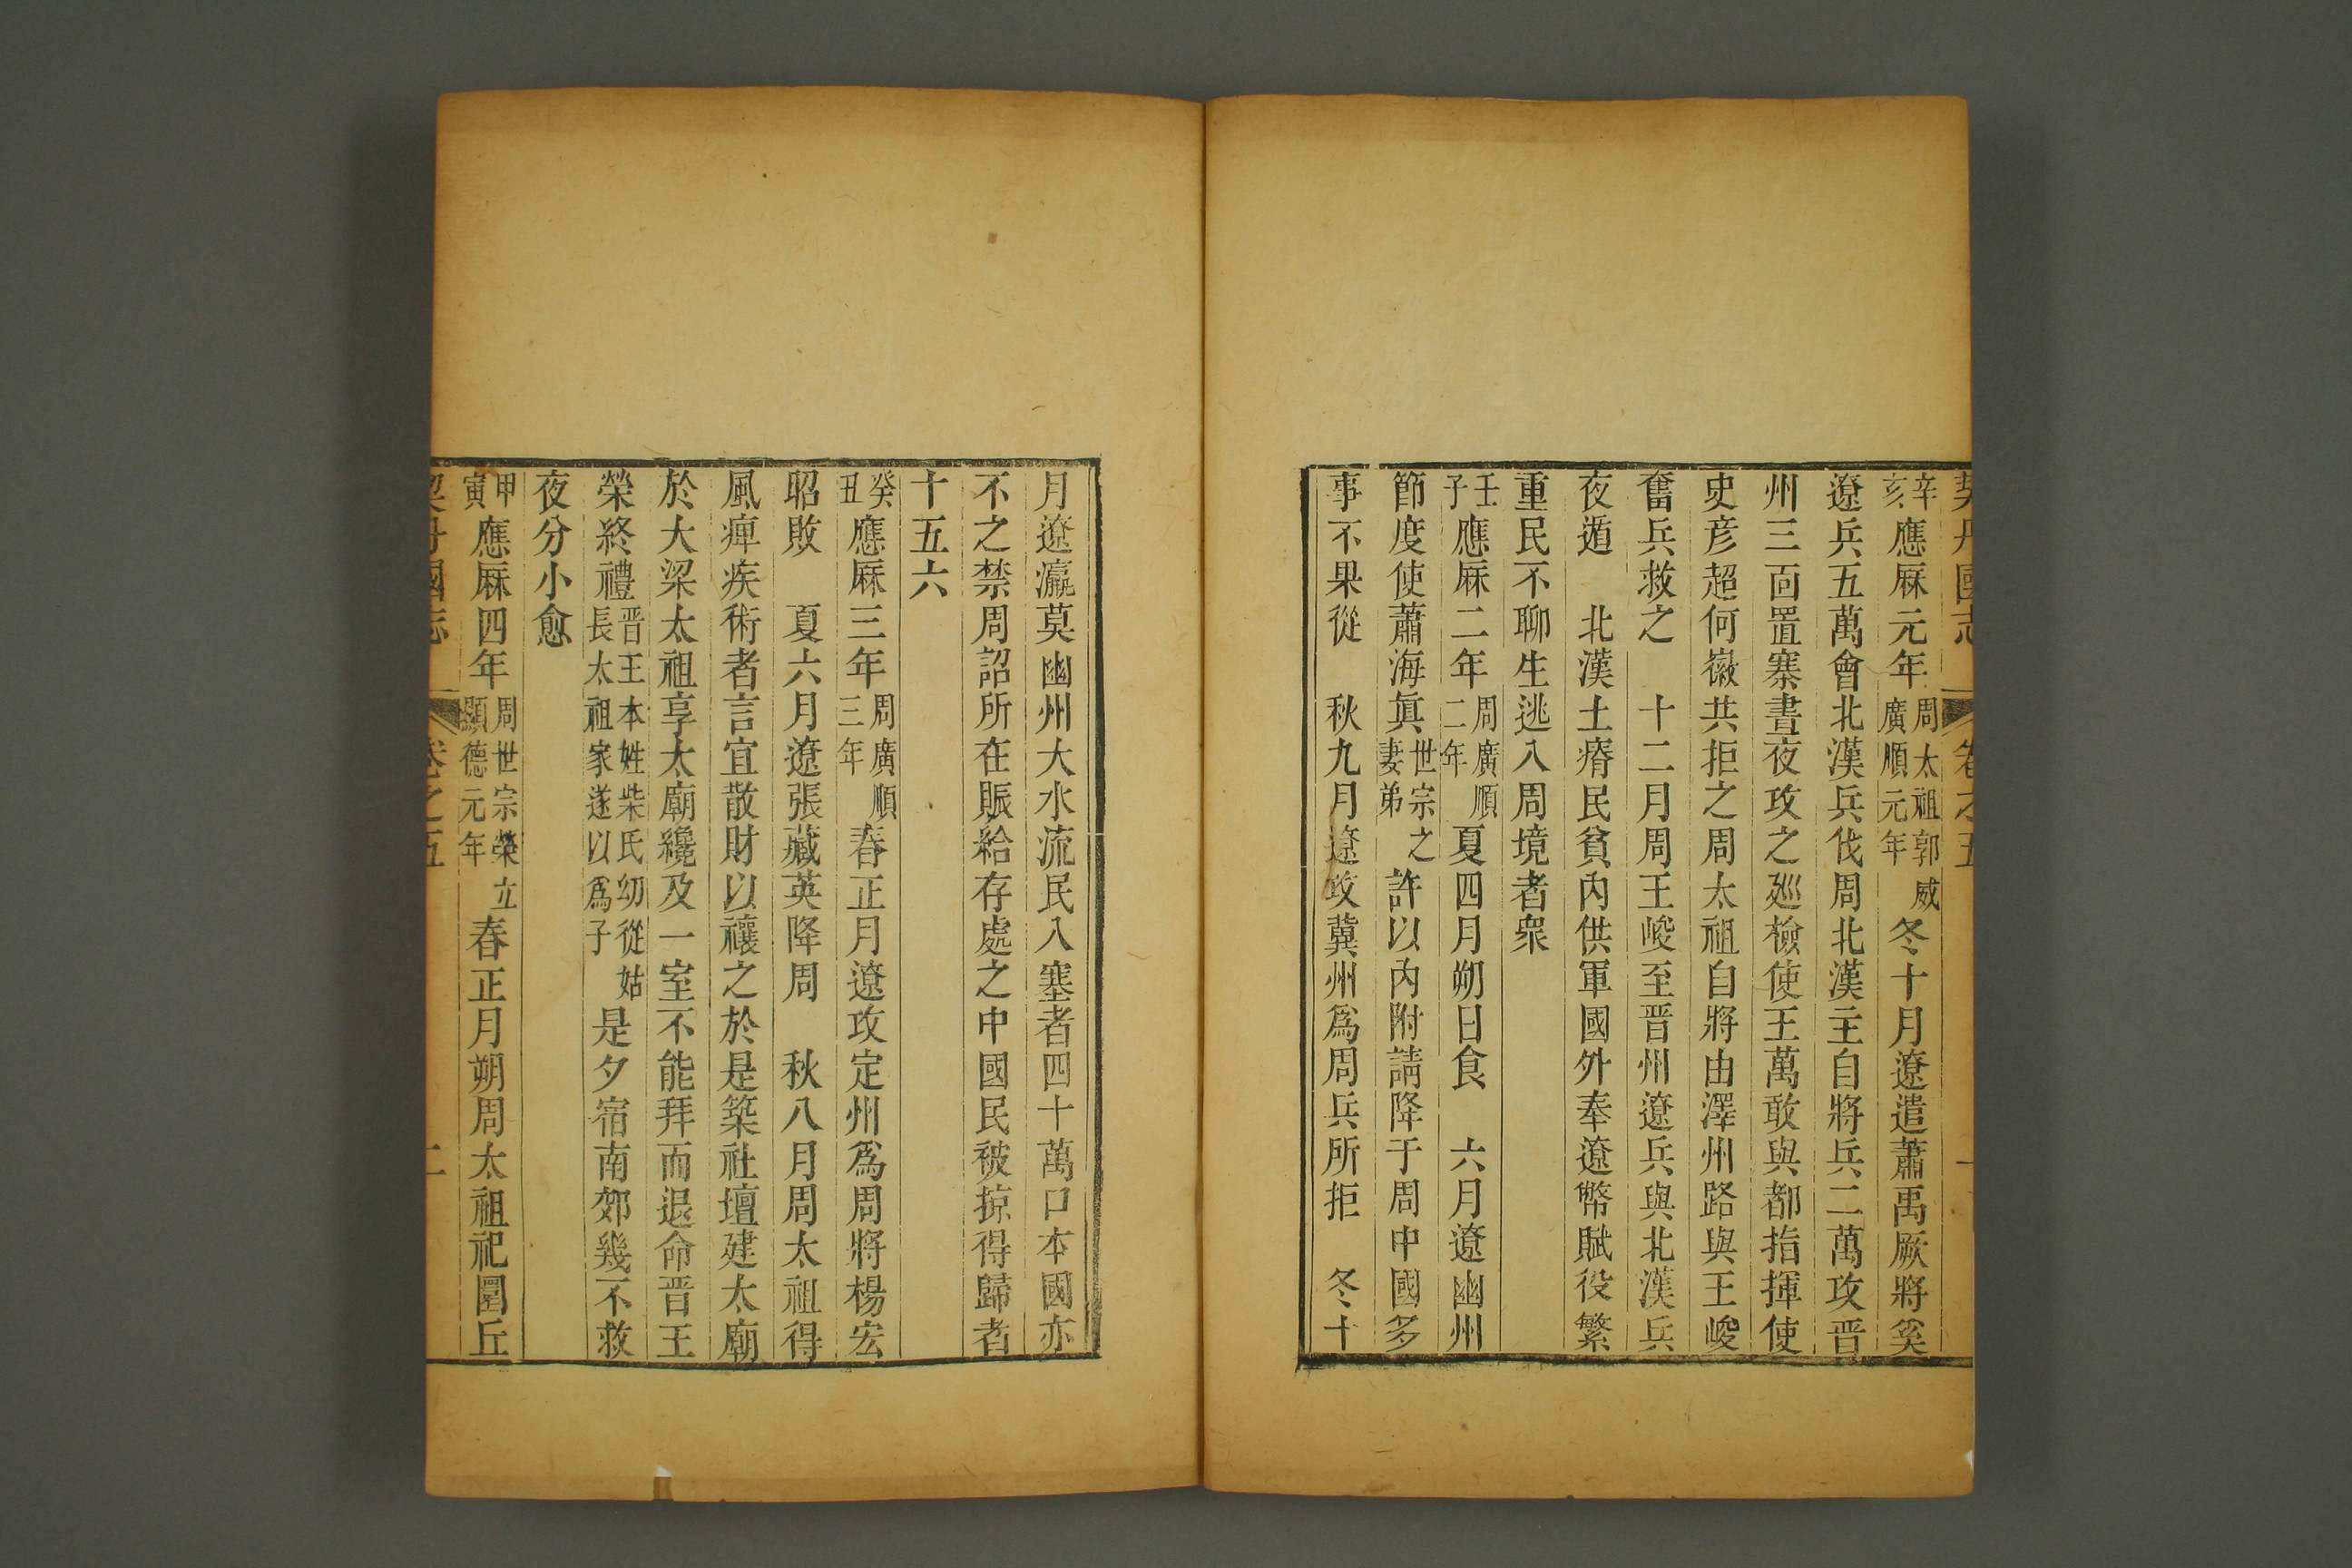 契丹國志 卷之五 一
辛亥應厤元年周太祖郭威廣順元年冬十月遼遣蕭禹厥將奚
遼兵五萬會北漢兵伐周北漢主自將兵二萬攻晉
州三面置寨晝夜攻之廵檢使王萬敢與都指揮使
史彦超何徽共拒之周太祖自將由澤州路與王峻
奮兵救之　十二月周王峻至晉州遼兵與北漢兵
夜遁　北漢土瘠民貧內供軍國外奉遼幣賦役繁
重民不聊生逃入周境者衆
壬子應厤二年周廣順二年夏四月朔日食　六月遼幽州
節度使蕭海眞世宗之妻弟許以內附請降于周中國多
事不果從　秋九月遼攻冀州爲周兵所拒　冬十
月遼瀛莫幽州大水流民入塞者四十萬口本國亦
不之禁周詔所在賑給存處之中國民被掠得歸者
十五六
癸丑應厤三年周廣順三年春正月遼攻定州爲周將楊宏
昭敗　夏六月遼張藏英降周　秋八月周太祖得
風痺疾術者言宜散財以禳之於是築社壇建太廟
於大梁太祖享太廟纔及一室不能拜而退命晉王
榮終禮晉王本姓柴氏幼從姑長太祖家遂以爲子是夕宿南郊幾不救
夜分小愈
甲寅應厤四年周世宗榮立顯德元年春正月朔周太祖祀圜丘
契丹國志 卷之五 二